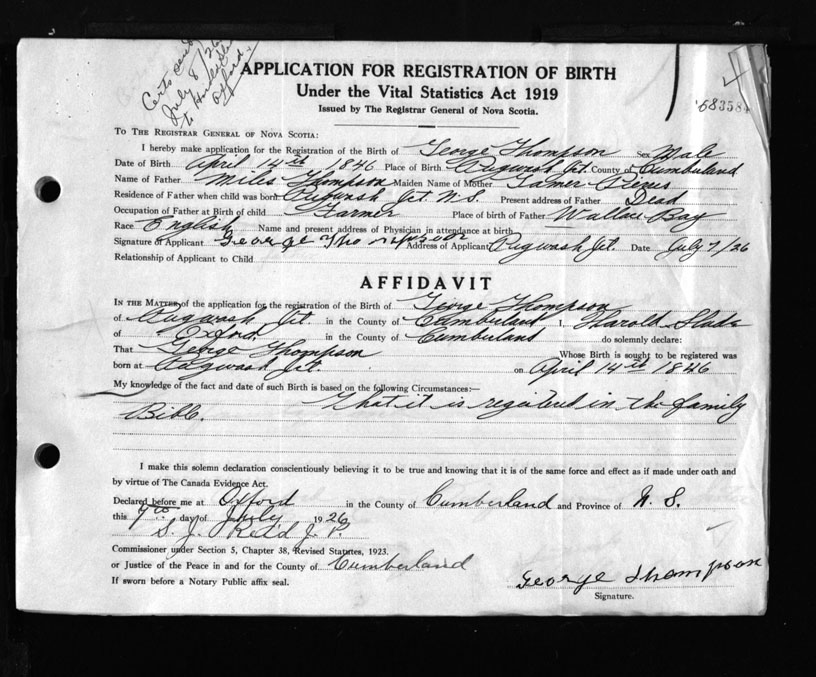 Certs send
July 8/26
to
Oxford
68358
APPLICATION FOR REGISTRATION OF BIRTH
Under the Vital Statistics Act 1919
Issued by The Registrar General of Nova Scotia.
TO THE REGISTRAR GENERAL OF NOVA SCOTIA:
I hereby make application for the Registration of the Birth of George Thompson Sex Male
Date of Birth April 14th 1846 Place of Birth Pugwash Jct. County of Cumberland
Name of Father Miles Thompson Maiden Name of Mother Tamer
Residence of Father when child was born Pugwash Jct N.S. Present address of Father Dead
Occupation of Father at Birth of child Farmer Place of birth of Father Wallace Bay
Race English Name and present address of Physician in attendance at birth
Signature of Applicant George Thompson Address of Applicant Pugwash Jct. Date July 7/26
Relationship of Applicant to Child
AFFIDAVIT
IN THE MATTER of the application for the registration of the Birth of George Thompson
of Pugwash Jct. in the County of Cumberland I, Harold Slade
of Oxford in the County of Cumberland do solemnly declare:
That George Thompson Whose Birth is sought to be registered was
born at Pugwash Jct. on April 14th 1846
My knowledge of the fact and date of such Birth is based on the following Circumstances:—
That it is registerd in the family
Bible.
I make this solemn declaration conscientiously believing it to be true and knowing that it is of the same force and effect as if made under oath and
by virtue of The Canada Evidence Act.
Declared before me at Oxford in the County of Cumberland and Province of N. S.
this 7th day of July 1926
S. J. Reid J. P.
Commissioner under Section 5, Chapter 38, Revised Statutes, 1923.
or Justice of the Peace in and for the County of Cumberland
If sworn before a Notary Public affix seal.
George Thompson
Signature.